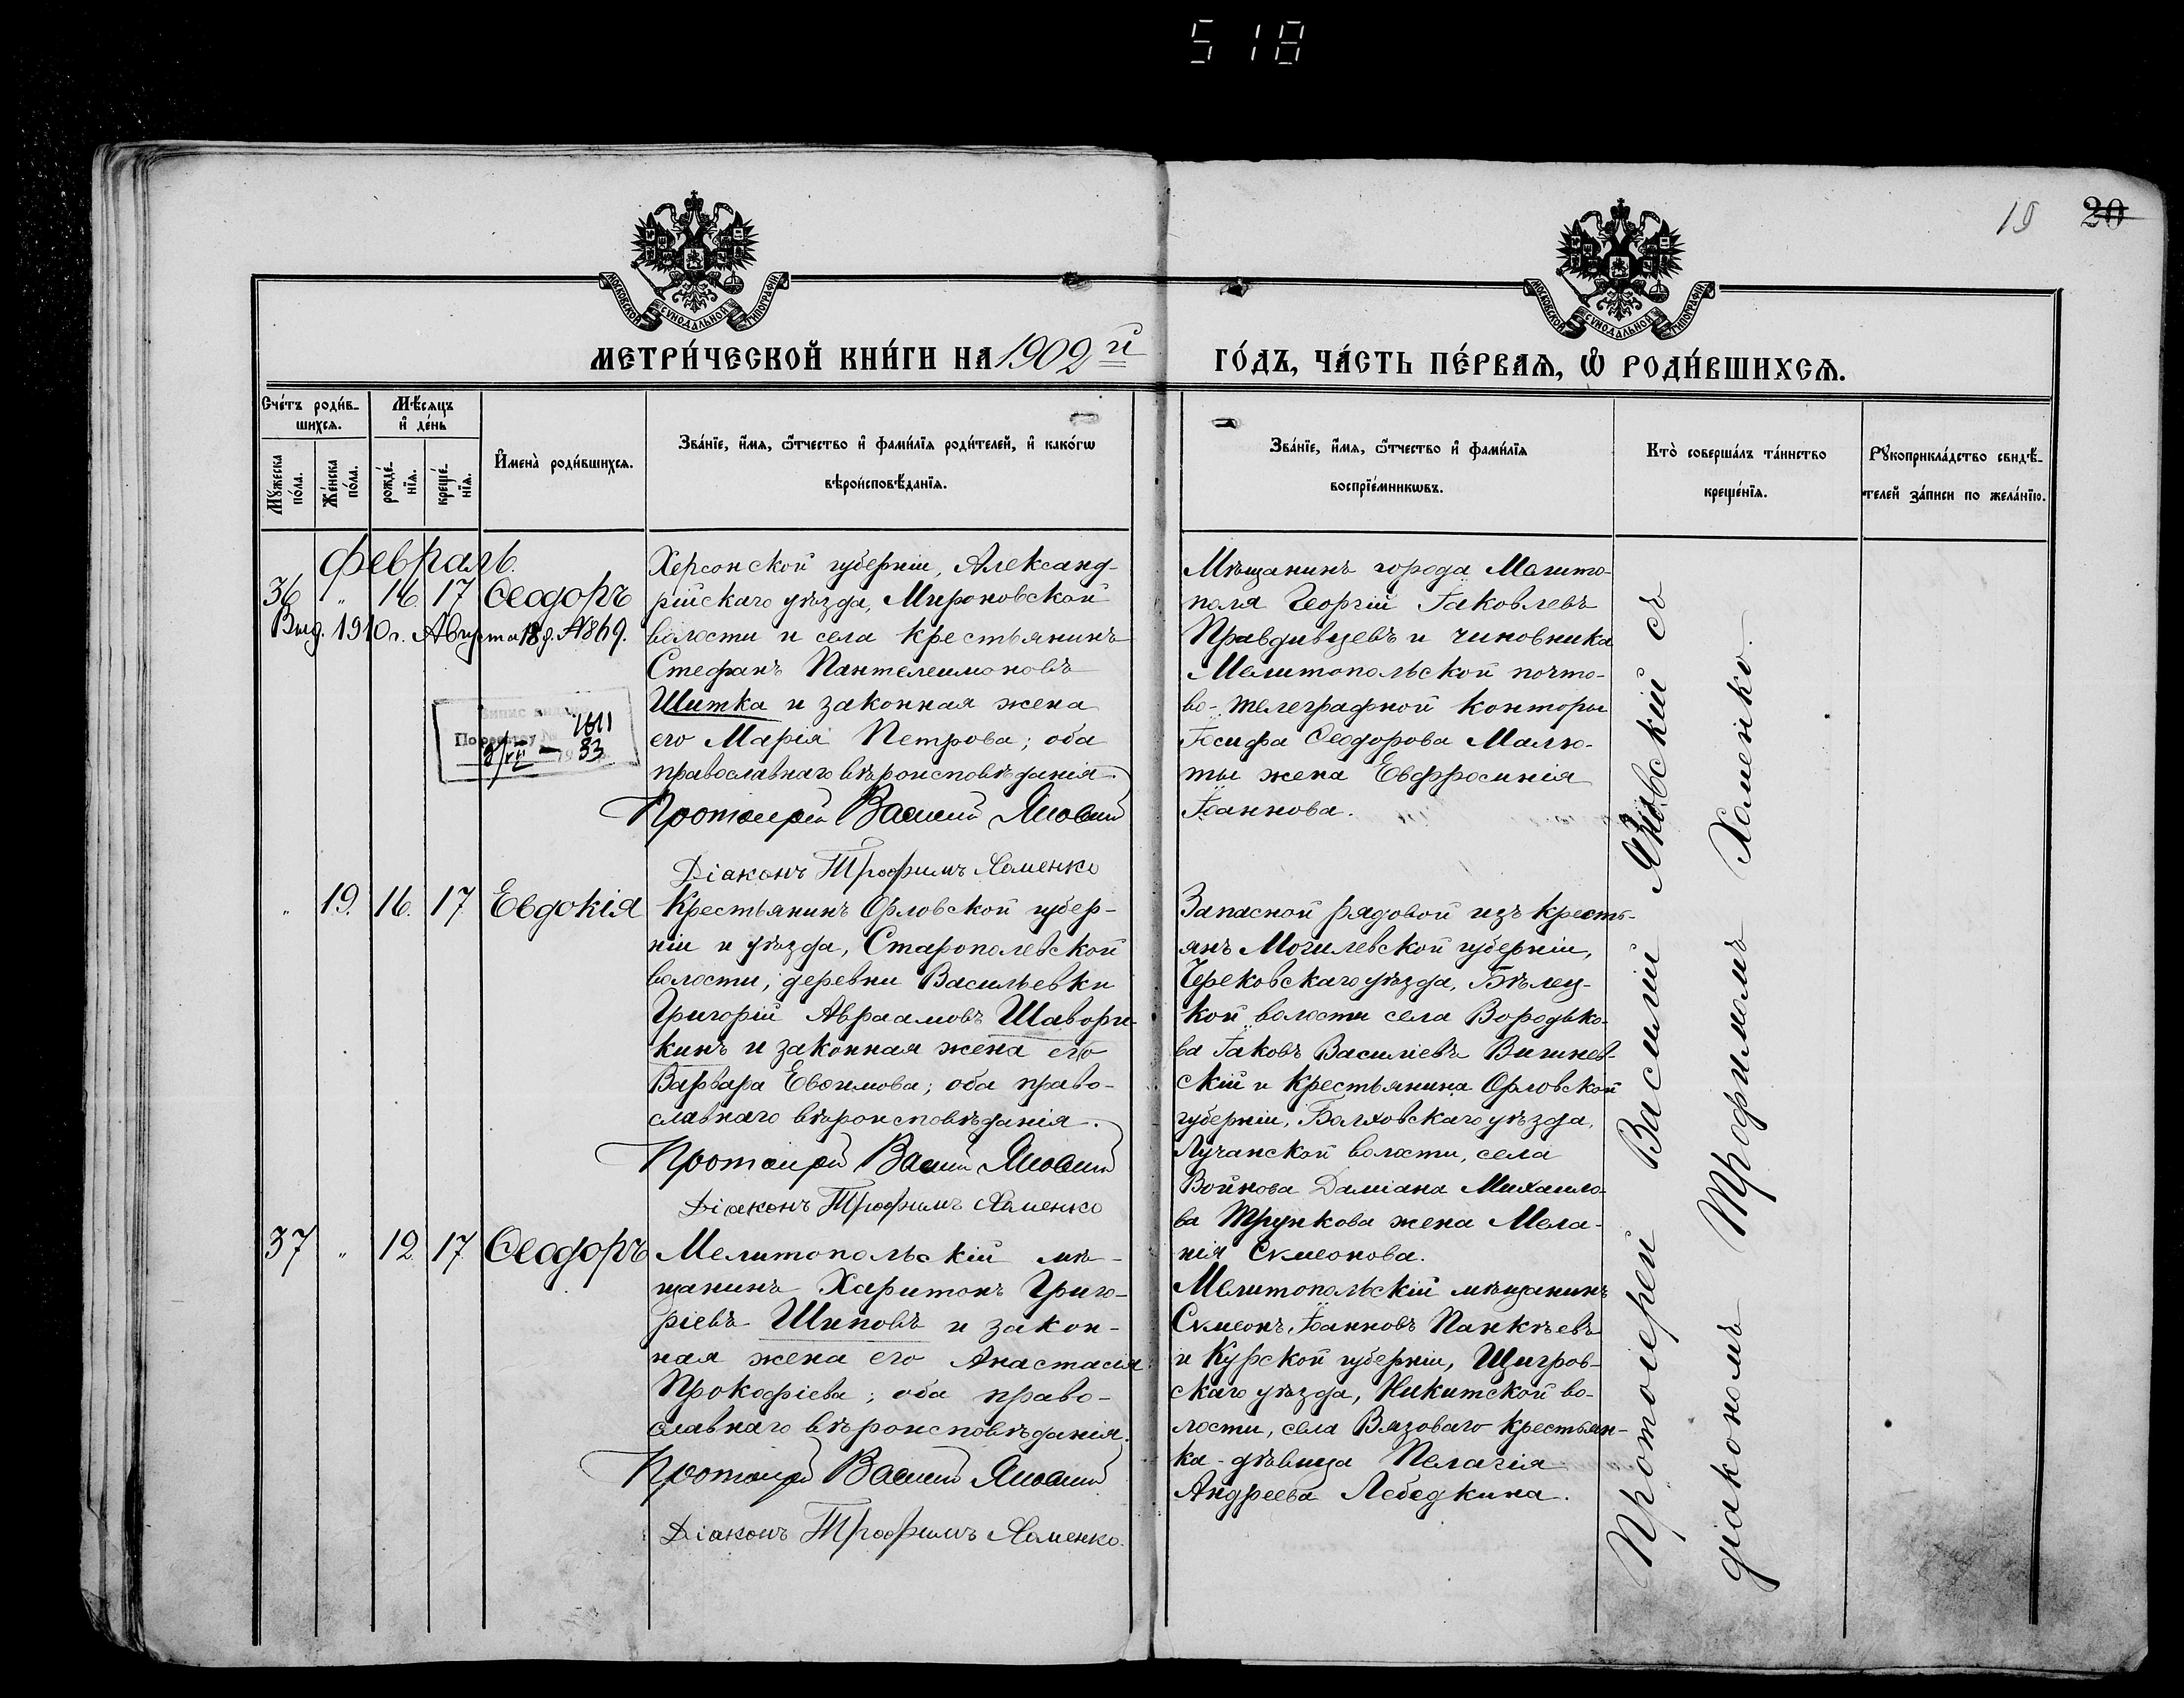 518
19 20
МОСКОВСКОЙ СѴНОДАЛЬНОЙ ТИПОГРАФІИ
МОСКОВСКОЙ СѴНОДАЛЬНОЙ ТИПОГРАФІИ
МЕТРИ́ЧЕСКОЙ КНИ́ГИ НА 1909й ГО́ДЪ, ЧА́СТЬ ПЕ́РВАѦ, Ѡ҆ РОДИ́ВШИХСѦ.
Сче́тъ роди́в-
шихсѧ.
Мѣ́сѧцъ
и҆ де́нь
Мꙋ́жеска
по́ла.
Же́нска
по́ла.
рожде́-
нїѧ.
креще́-
нїѧ.
И҆мена̀ роди́вшихсѧ.
Зва́нїе, и҆́мѧ, ѻ҆́тчество и҆ фами́лїѧ роди́телей, и҆ како́гѡ
вѣроисповѣ́данїѧ.
Зва́нїе, и҆́мѧ, ѻ҆́тчество и҆ фами́лїѧ
воспрїе́мникѡвъ.
Кто̀ соверша́лъ та́инство
креще́нїѧ.
Рꙋкоприкла́дство свидѣ́-
телей за́писи по жела́нїю.
Февраль.
36 " 16 17 Ѳеодоръ
Выд. 1910 г. Августа 18 д. № 869.
Випис видано
По реєстру № 1611
9/XII — 33
Херсонской губерніи, Александ-
рійскаго уѣзда, Мироновской
волости и села крестьянинъ
Стефанъ Пантелеимоновъ
Шитка и законная жена
его Марія Петрова; оба
православнаго вѣроисповѣданія.
Протоіерей Василій Яновскій
Діаконъ Трофимъ Хоменко
Мѣщанинъ города Мелито-
поля Георгій Іаковлевъ
Правдивцевъ и чиновника
Мелитопольской почто-
во-телеграфной конторы
Іосифа Ѳеодорова Малю-
ты жена Евфросинія
Іоаннова.
" 19. 16. 17 Евдокія
Крестьянинъ Орловской губер-
ніи и уѣзда, Старопольской
волости, деревни Васильевки
Григорій Авраамовъ Шаворы-
кинъ и законная жена его
Варвара Евѳимова; оба право-
славнаго вѣроисповѣданія.
Протоіерей Василій Яновскій
Діаконъ Трофимъ Хоменко
Запасной рядовой изъ кресть-
янъ Могилевской губерніи,
Чериковскаго уѣзда, Бѣлец-
кой волости села Вородько-
ва Іаковъ Василіевъ Вишнев-
скій и крестьянина Орловской
губерніи, Болховскаго уѣзда,
Лучанской волости, села
Войнова Даміана Михаило-
ва Трункова жена Мела-
нія Сѵмеонова.
37 " 12 17 Ѳеодоръ
Мелитопольскій мѣ-
щанинъ Харитонъ Григо-
ріевъ Шиповъ и закон-
ная жена его Анастасія
Прокофіева; оба право-
славнаго вѣроисповѣданія.
Протоіерей Василій Яновскій
Діаконъ Трофимъ Хоменко.
Мелитопольскій мѣщанинъ
Сѵмеонъ Іоанновъ Панкѣевъ
и Курской губерніи, Щигров-
скаго уѣзда, Никитской во-
лости, села Вязоваго крестьян-
ка-дѣвица Пелагія
Андреева Лебедкина.
Протоіерей Василій Яновскій съ
діакономъ Трофимомъ Хоменко.